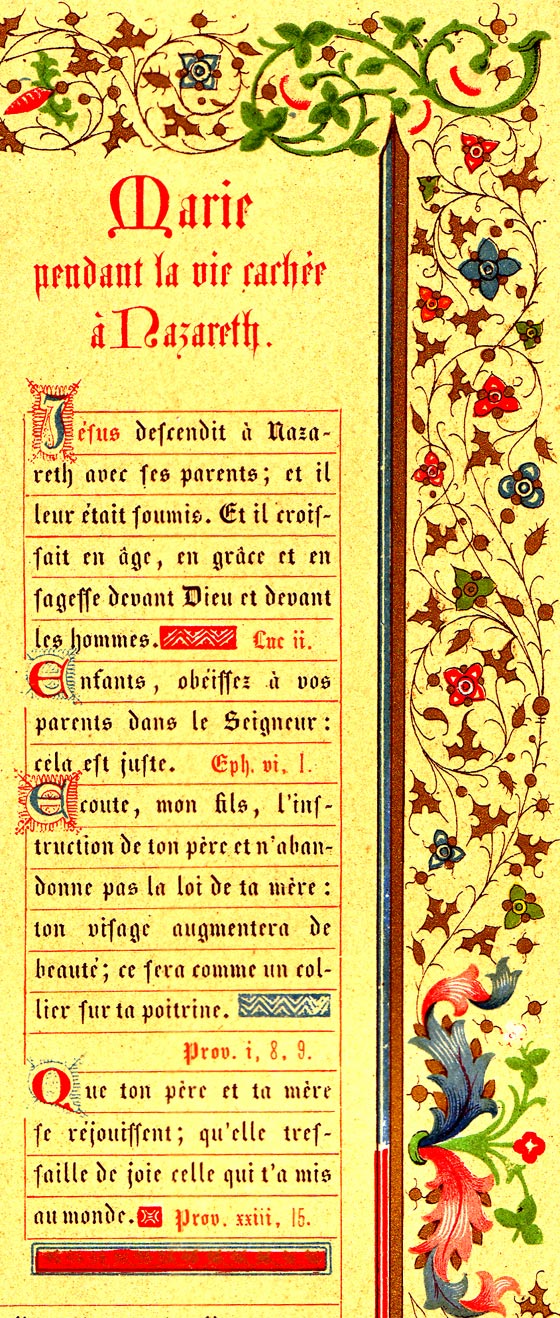 Marie
pendant la vie cachée
à Nazareth.
Jésus descendit à Naza-
reth avec ses parents; et il
leur était soumis. Et il crois-
sait en âge, en grâce et en
sagesse devant Dieu et devant
les hommes. Luc ii.
Enfants, obéissez à vos
parents dans le Seigneur:
cela est juste. Eph. vi, 1.
Ecoute, mon fils, l'ins-
truction de ton père et n'aban-
donne pas la loi de ta mère:
ton visage augmentera de
beauté; ce sera comme un col-
lier sur ta poitrine.
Prov. i, 8, 9.
Que ton père et ta mère
se réjouissent; qu'elle tres-
saille de joie celle qui t'a mis
au monde. Prov. xxiii, 15.